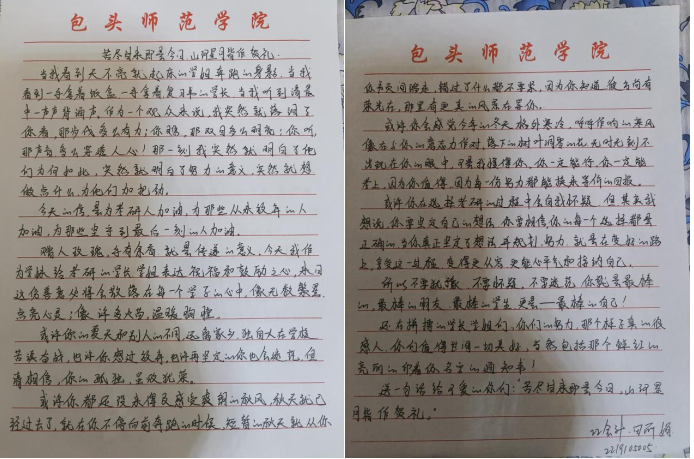 包头师范学院
苦尽甘来那是今日,山河星月皆作贺礼.
当我看到天不亮就起床的学姐奔跑的身影,当我
看到一手拿着饭盒一手拿着复习书的学长,当我听到清晨
中一声声背诵声,作为一个观众来说,我突然就落泪了
你看,那步伐多么有力;你瞧,那双目多么明亮;你听,
那声音多么穿透人心!那一刻我突然就明白了他
们为何如此,突然就明白了努力的意义,突然就想
做点什么,为他们加把劲。
今天的信是为考研人加油,为那些从未放弃的人
加油,为那些坚守到最后一刻的人加油。
赠人玫瑰,手有余香,就是传递的意义,今天我作
为学妹给考研的学长学姐表达祝福和鼓励之心,来日
这份善意必将会散落在每一个学子的心中,像无数繁星,
点亮心灵;像许多火苗,温暖胸膛。
或许你的夏天和别人的不同,远离家乡,独自火在学校
苦读奋战,也许你想过放弃,也许再坚定的你也会迷茫,但
请相信,你的孤独,虽败犹荣。
或许你都还没来得及感受爽朗的秋风,秋天就已
经过去了,就在你不停向前奔跑的时候,短暂的秋天就从你
包头师范学院
你每天间溜走,错过了什么都不要紧,因为你知道,前方尚有
荣光在,那里有更美的风景在等你。
或许你会感觉今年的冬天格外寒冷,呼呼作响的寒风
像在与你的意志力作对,落下的树叶凋零的花无时无刻不
出现在你的眼中,可是我懂得你,你一定能行,你一定能
考上,因为你值得,因为每一份努力都能换来等价的回报。
或许你在选择考研的过程中会自我怀疑,但其实我
想说,你要坚定自己的想法,你要相信你的每个选择都是
正确的,当你真正坚定了想法并规划,努力,就是在变好的路
上,享受这一过程,变得更从容更能心平气和接纳自己。
所以不要犹豫,不要怀疑,不要迷茫,你就是最棒
的,最棒的朋友,最棒的学生,更是——最棒的自己!
还在拼搏的学长学姐们,你们的努力,那个样子真的很
感人,你们值得世间一切美好,当然包括那个鲜红的
亮丽的印着你名字的通知书!
送一句话给可爱的你们:“苦尽甘来那是今日,山河星
月皆作贺礼。”
22会计
2219105005